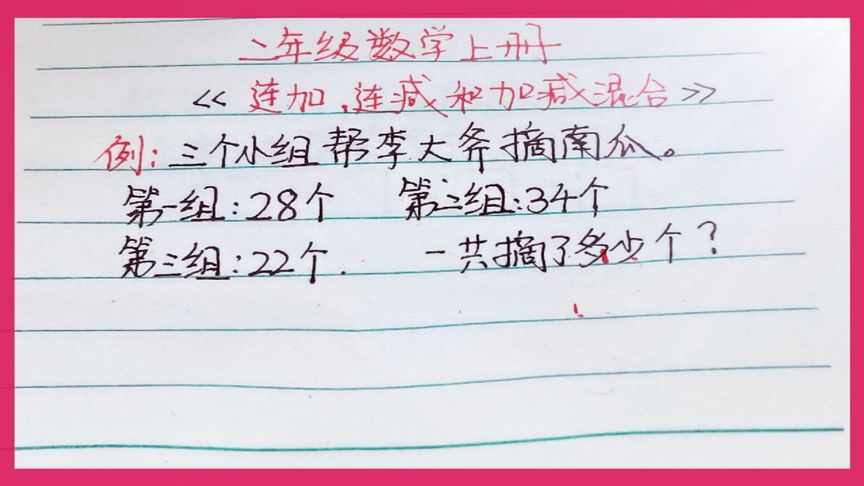 二年级数学上册
《连加、连减和加减混合》
例:三个小组帮李大爷摘南瓜。
第一组:28个 第二组:34个
第三组:22个. 一共摘了多少个?